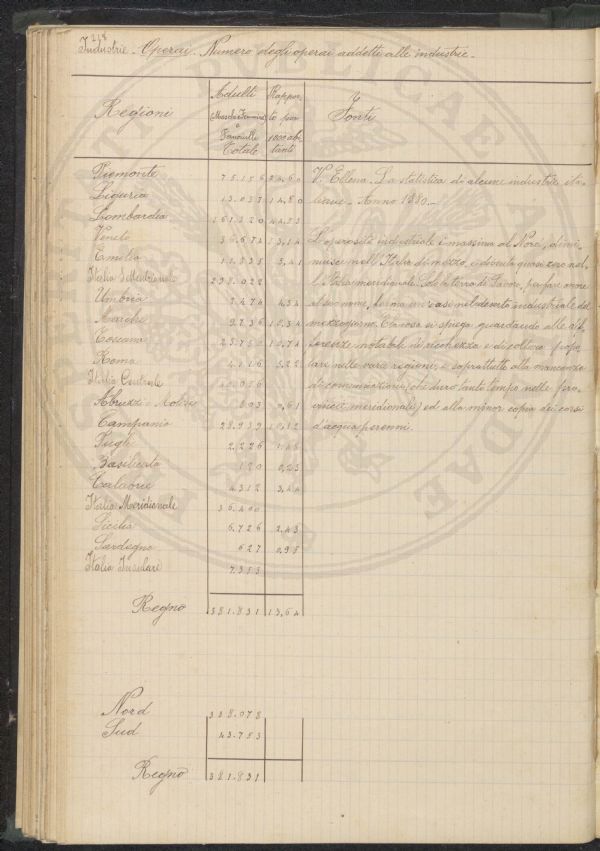 218
Industrie - Operai. Numero degli operai addetti alle industrie.
Regioni Adulti (Maschi e Femmine) e Fanciulli Totale Rapporto per 1000 abitanti Fonti
Piemonte 75.156 24,60 V. Ellena. La statistica di alcune industrie ita-
Liguria 13.031 14,60 liane. Anno 1880.-
Lombardia 161.320 44,53
Veneto 36.674 13,14 L'operosità industriale è massima al Nord, dimi-
Emilia 11.835 5,41 nuisce nell'Italia di mezzo, e diventa quasi zero nel-
Italia Settentrionale 298.022 l'Italia meridionale. Solo la terra di Lavoro, per fare onore
Umbria 2.474 4,34 al suo nome, forma un'oasi nel deserto industriale del
Marche 9.736 10,34 mezzogiorno. La cosa si spiega guardando alle dif-
Toscana 23.750 10,74 ferenze notabili di ricchezza e di coltura popo-
Roma 4.116 5,22 lare nelle varie regioni, e soprattutto alla mancanza
Italia Centrale 40.056 di comunicazioni (che durò tanto tempo nelle pro-
Abruzzi e Molise 893 0,61 vincie meridionali) ed alla minor copia dei corsi
Campania 28.939 10,12 d'acqua perenni.
Puglie 2.226 1,48
Basilicata 120 0,23
Calabrie 4.312 3,44
Italia Meridionale 36.400
Sicilia 6.726 2,43
Sardegna 627 0,95
Italia Insulare 7.353
Regno 381.831 13,64
Nord 338.078
Sud 43.753
Regno 381.831